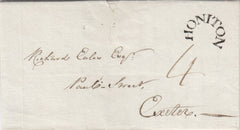 HONITON
Richard Eales Esqr.
4
Street,
Exeter.